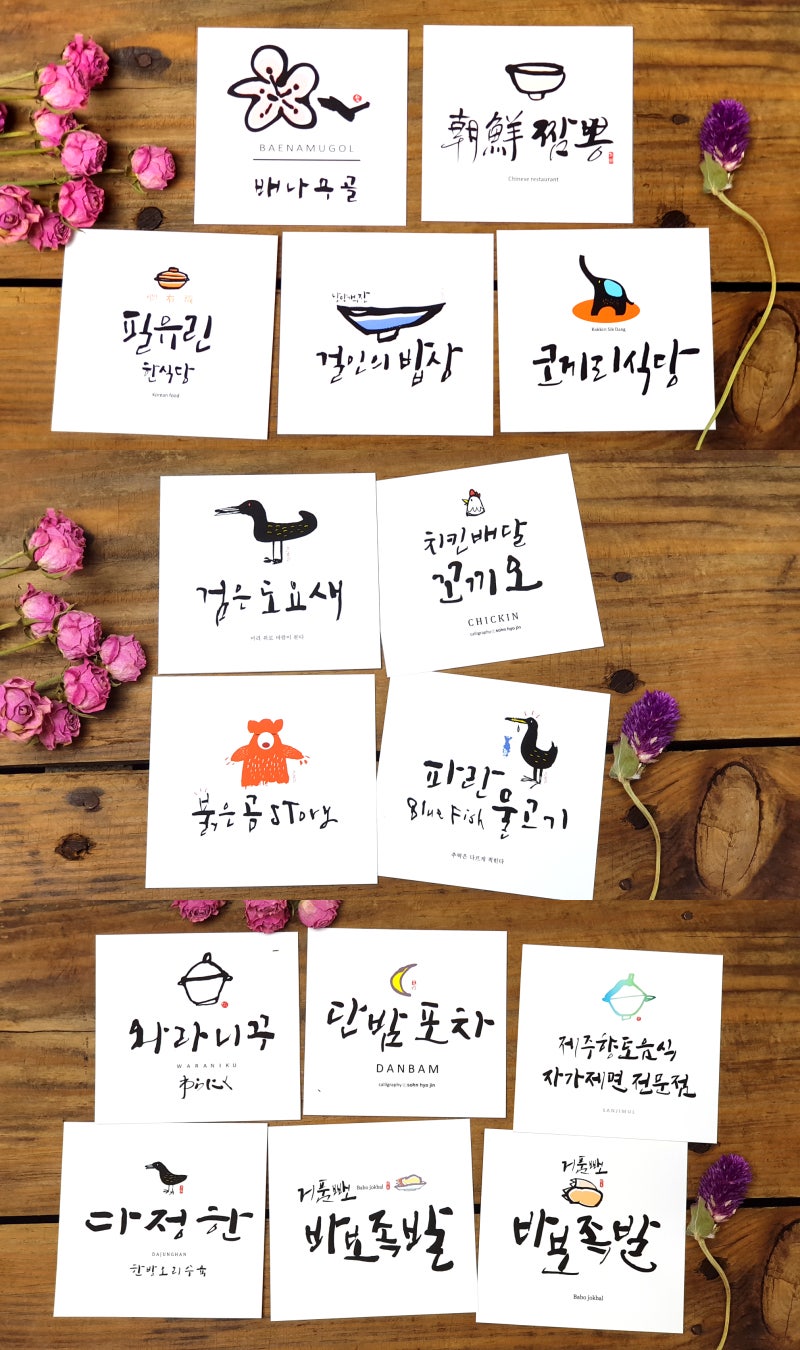 BAENAMUGOL
배나무골
朝鮮짬뽕
Chinese restaurant
필유린
한식당
Korean food
걸인의밥상
Kokkiri Sik Dang
코끼리식당
검은도요새
머리 위로 바람이 분다
치킨배달
꼬끼오
CHICKIN
calligraphy :: sohn hyo jin
붉은곰 STory
파란
Blue Fish 물고기
추억은 다르게 적힌다
와라니꾸
WARANIKU
わらにく
단밤포차
DANBAM
calligraphy :: sohn hyo jin
제주향토음식
자가제면 전문점
SANJIMUL
다정한
DAJUNGHAN
한방오리수육
거품뺀 Babo jokbal
바보족발
거품뺀
바보족발
Babo jokbal